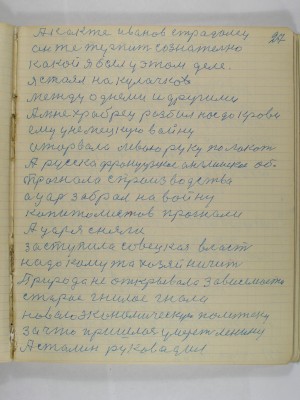 27
А как те иванов страдаму
он те терпит сознателно
какой я всем у этом деле.
я стаял на кулачков
между однеми и другими
мне храбрец розбил нос до крови
ему у немецкую войну
аторвала леваю руку по лакот
А руска францужкое английское об-
прогнала с производства
а уар забрал на войну
капиталистов прогнали
А царя сняли
заступила совецкая власт
надо кому та хозяйничит
Природа не открывала зависемост
старае гнилое гнала
новаю экономическую политику
за что пришлося умует ленину
А сталин руковадил